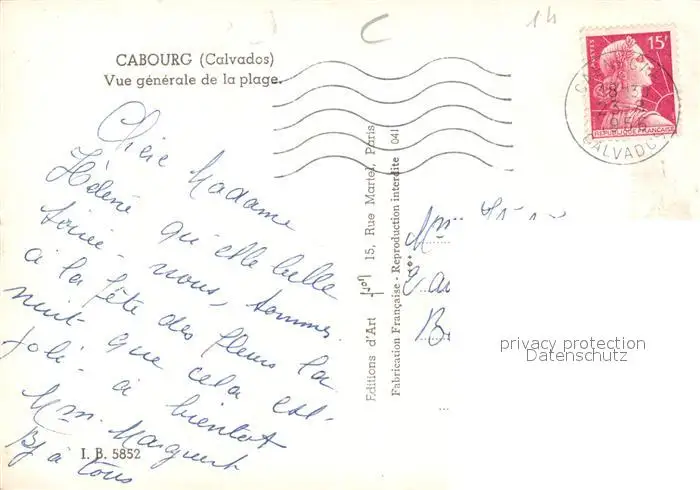 CABOURG (Calvados)
Vue générale de la plage.
Chère Madame
Hélène qu'elle belle
soirée - nous, sommes
à la fête des fleurs la
nuit que cela est
joli - à bientôt
Mme
By à tous
I. B. 5852
Editions d'Art 15, Rue Martel, Paris
Fabrication Française - Reproduction interdite 041
14
POSTES
15F
REPUBLIQUE FRANÇAISE
18-30
1956
CALVADOS
privacy protection
Datenschutz